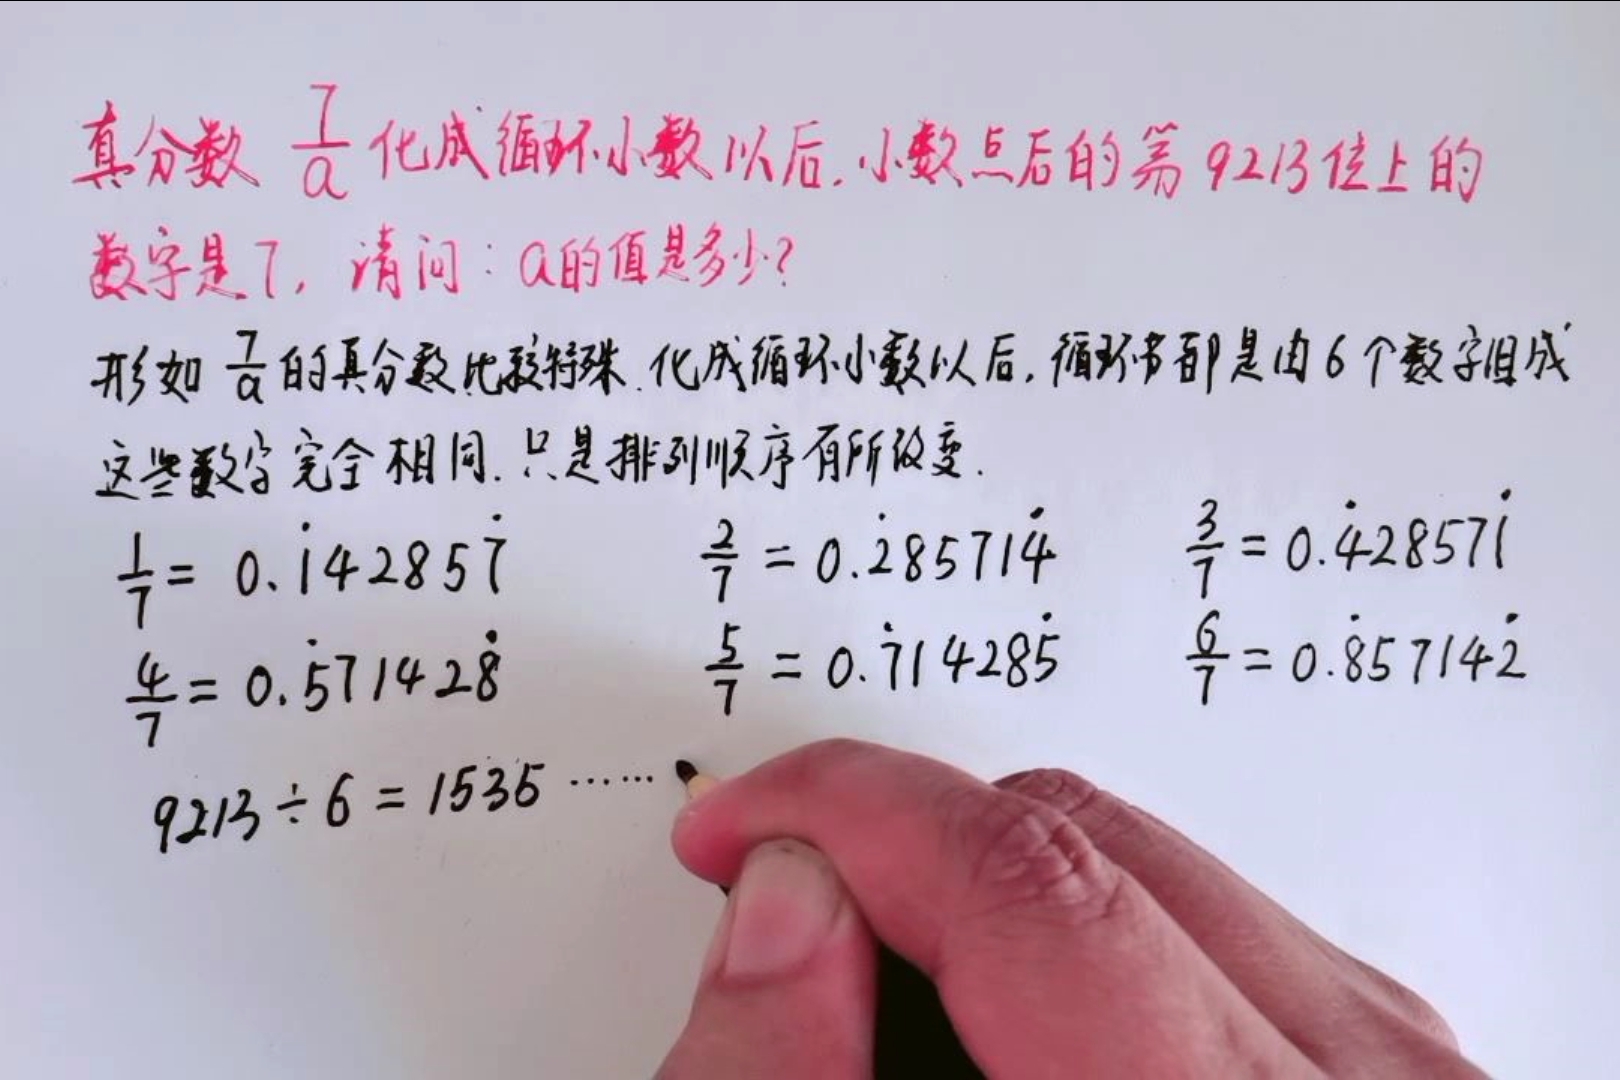 真分数 7/a 化成循环小数以后,小数点后的第9213位上的
数字是7,请问:a的值是多少?
形如 7/a 的真分数比较特殊.化成循环小数以后,循环节都是由6个数字组成
这些数字完全相同.只是排列顺序有所改变.
1/7 = 0.1̇42857̇ 2/7 = 0.2̇85714̇ 3/7 = 0.4̇28571̇
4/7 = 0.5̇71428̇ 5/7 = 0.7̇14285̇ 6/7 = 0.8̇57142̇
9213÷6=1535……